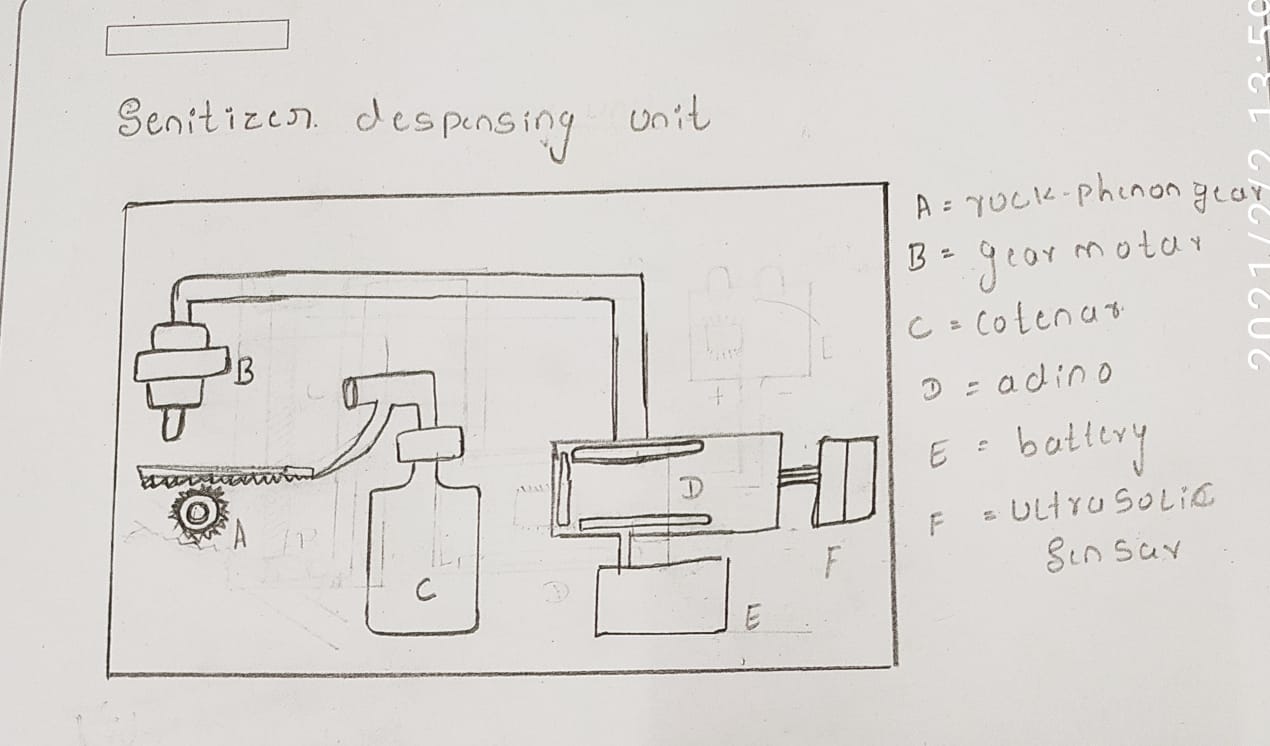 Senitizer. despensing unit
A = rock-phenon gear
B = gear motar
C = Cotenar
D = adino
E = battery
F = Ultra Solic
Sensar
B
A
C
D
E
F
2021/2/2 13:59